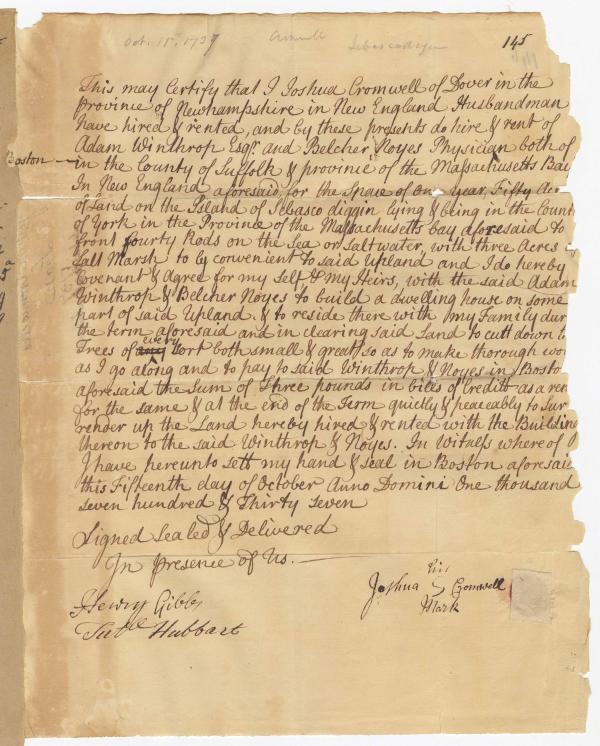 Oct. 15. 1737 Cromwell Sebascodegin 145
This may Certify that I Joshua Cromwell of Dover in the
province of Newhampshire in New England Husbandman
have hired & rented, and by these presents do hire & rent of
Adam Winthrop Esqr. and Belcher Noyes Physician both of
Boston
in the County of Suffolk & province of the Massachusetts Bay
In New England aforesaid for the Space of One year, Fifty Acr
of Land on the Island of Sebasco diggin lying & being in the Count
of York in the Province of the Massachusetts bay aforesaid to
front fourty Rods on the Sea or Saltwater, with three Acres
Salt Marsh to by convenient to said Upland and I do hereby
Covenant & Agree for my self & My Heirs, with the said Adam
Winthrop & Belcher Noyes to build a dwelling house on some
part of said Upland. & to reside there with My Family dur
the term aforesaid and in clearing said Land to cutt down t
every
Trees of any Sort both small & great so as to make thorough wor
as I go along and to pay to said Winthrop & Noyes in Bosto
aforesaid the Sum of Three pounds in bills of Credit as a ren
for the same & at the end of the Term quietly & peaceably to Sur
render up the Land hereby hired & rented with the Building
thereon to the said Winthrop & Noyes. In Witness where of
I have hereunto sett my hand & seal in Boston aforesaid
this Fifteenth day of October Anno Domini One thousand
seven hundred & Thirty Seven
Signed Sealed & Delivered
In presence of Us.
his
Joshua Cromwell
Mark
Henry Gibbs
Hubbart